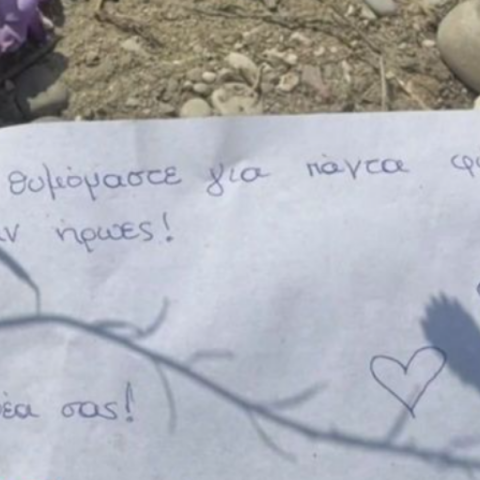 θυμόμαστε για πάντα
ήρωες!
σας!